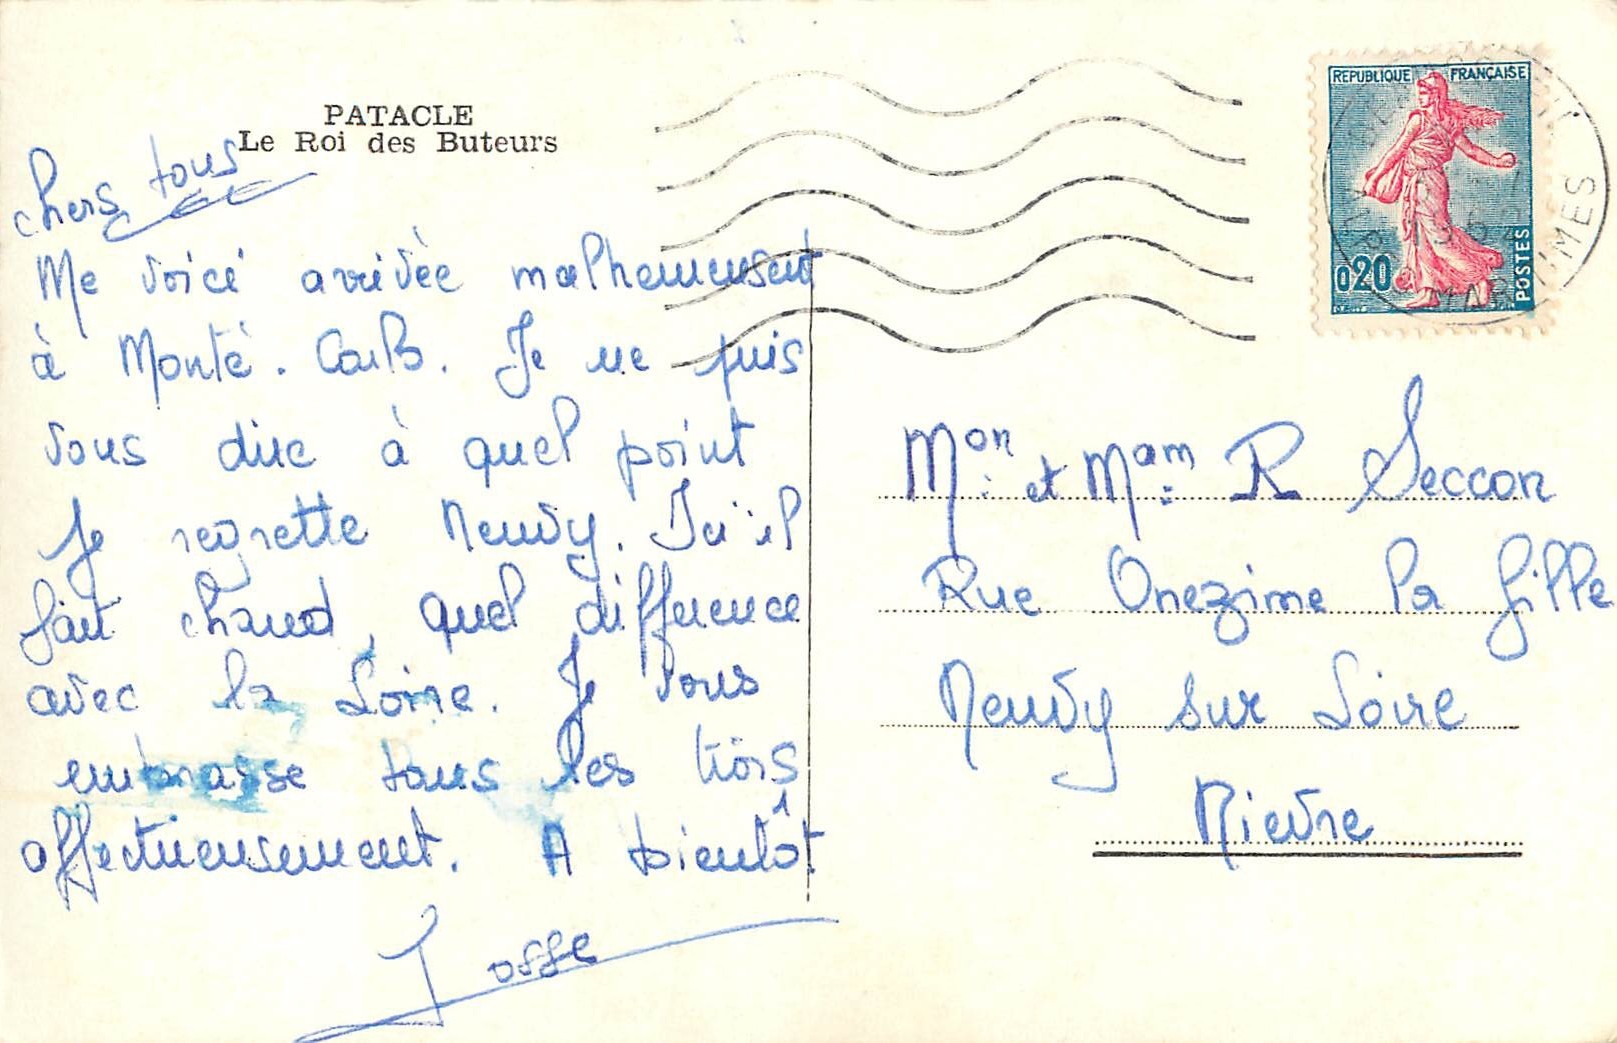 PATACLE
Le Roi des Buteurs
chers tous
Me voici arrivée malheureusent
à Monté. Carlo. Je ne puis
vous dire à quel point
Je regrette Neuvy. Ici il
fait chaud, quel différence
avec la Loire. Je vous
embrasse tous les trois
affectueusement. A bientôt
REPUBLIQUE FRANÇAISE
0,20
POSTES
Mon et Mam R Seccon
Rue Onezime la fille
Neuvy sur Loire
Nievre